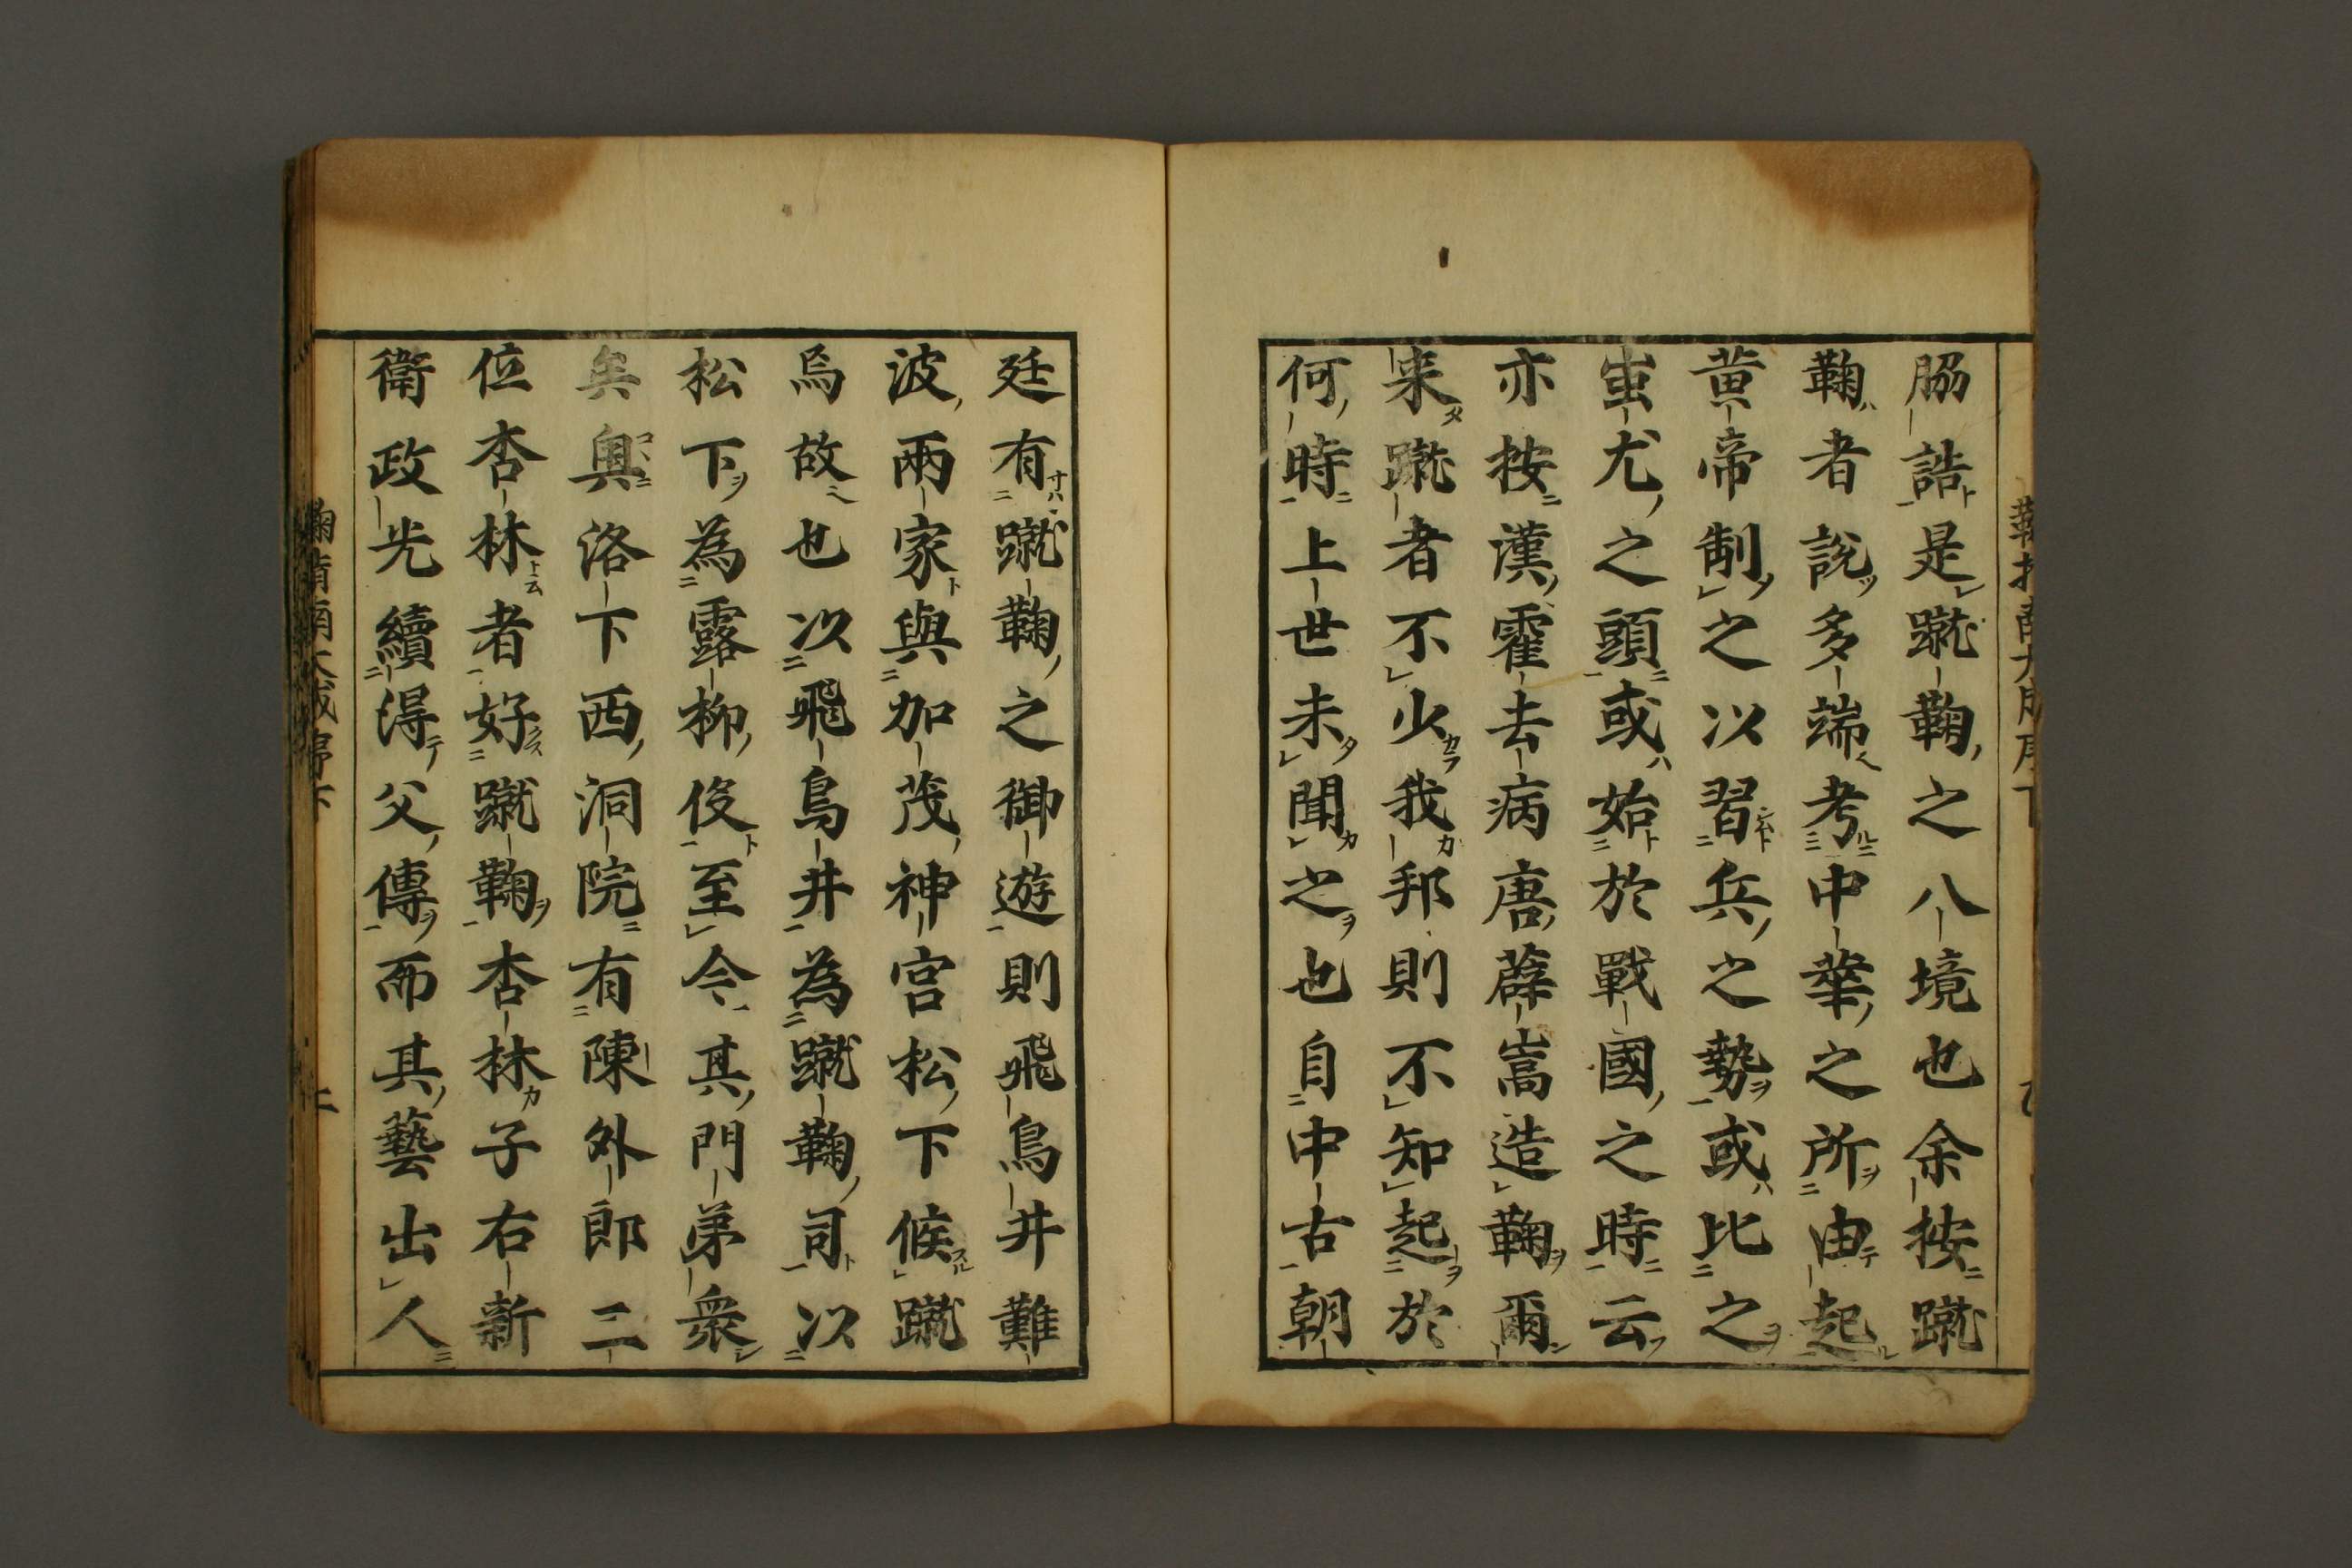 脇誥是蹴鞠之八境也余按蹴
鞠者說多端考中華之所由起
黄帝制之以習兵之勢或比之
蚩尤之頭或始於戰國之時云
亦按漢霍去病唐薜嵩造鞠爾
来蹴者不少我邦則不知起於
何時上世未聞之也自中古朝
廷有蹴鞠之御遊則飛鳥井難
波兩家與加茂神宮松下候蹴
鳥故也以飛鳥井為蹴鞠司以
松下為露柳役至今其門弟衆
矣輿洛下西洞院有陳外郎二
位杏林者好蹴鞠杏林子右新
衛政光續得父傳而其藝出人
鞠指南大成序下 二